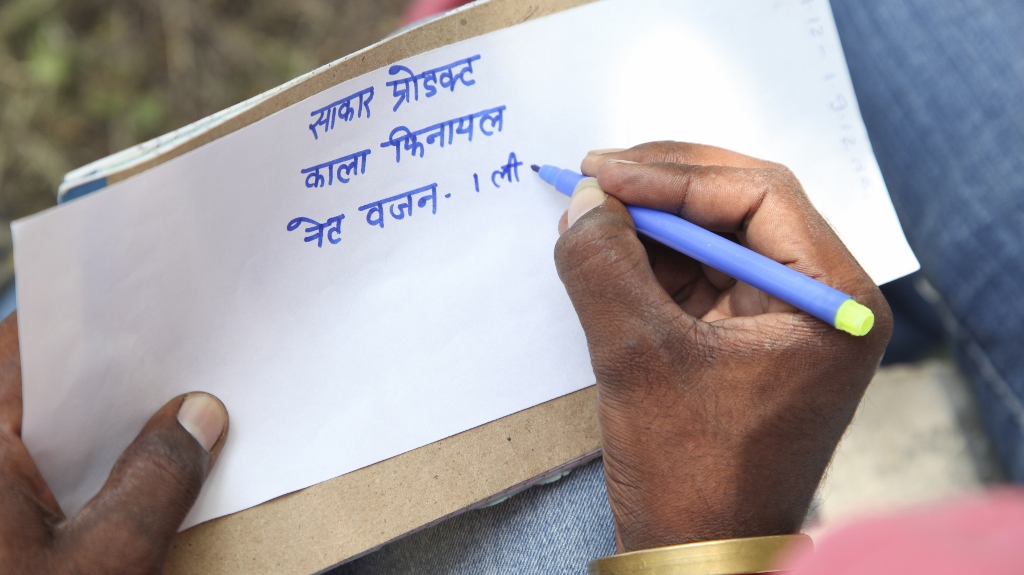 साकार प्रोडक्ट
काला फिनायल
नेट वजन. 1 ली